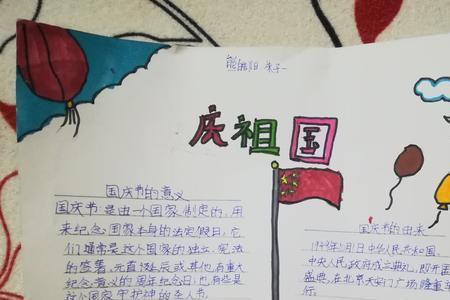 庆祖国
国庆节的意义
国庆节是由一个国家制定的,用
来纪念国家本身的法定假日,它
们通常是这个国家的独立、宪法
的签署、元首诞辰或其他有重大
纪念意义的周年纪念日,也有些是
这个国家守护神的圣人节。
国庆节的由来
1949年10月1日中华人民共和国
中央人民政府成立典礼,即开国
盛典,在北京天安门广场隆重